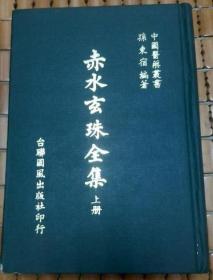 中國醫藥叢書
孫東宿編著
赤水玄珠全集
上册
台聯國風出版社印行